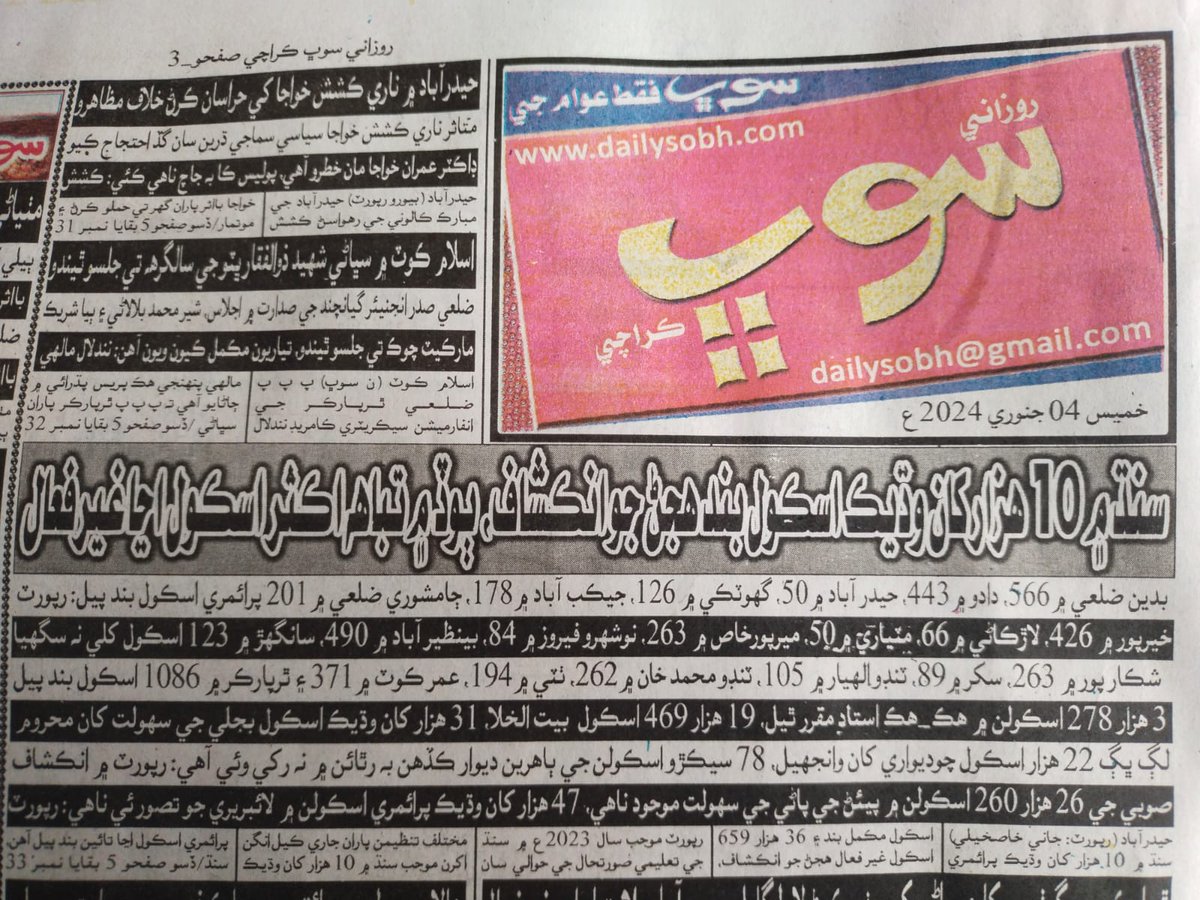 روزاني سوڀ ڪراچي صفحو_3
سوڀ فقط عوام جي
www.dailysobh.com
روزاني
سوڀ
ڪراچي
dailysobh@gmail.com
خميس 04 جنوري 2024 ع
حيدرآباد ۾ ناري ڪشش خواجا کي حراسان ڪرڻ خلاف مظاهرو
متاثر ناري ڪشش خواجا سياسي سماجي ڌرين سان گڏ احتجاج ڪيو
ڊاڪٽر عمران خواجا مان خطرو آهي، پوليس ڪا به جاچ ناهي ڪئي: ڪشش
حيدرآباد (بيورو رپورٽ) حيدرآباد جي
مبارڪ ڪالوني جي رهواسڻ ڪشش
خواجا بااثر پاران گهر تي حملو ڪرڻ ۽
موتمار/ڏسو صفحو 5 بقايا نمبر 31
اسلام ڪوٽ ۾ سڀاڻي شهيد ذوالفقار ڀٽو جي سالگرهه تي جلسو ٿيندو
ضلعي صدر انجنيئر گيانچند جي صدارت ۾ اجلاس، شير محمد بلالاڻي ۽ ٻيا شريڪ
مارڪيٽ چوڪ تي جلسو ٿيندو، تياريون مڪمل ڪيون ويون آهن: نندلال مالهي
اسلام ڪوٽ (ن سوڀ) پ پ پ
ضلعي ٿرپارڪر جي
انفارميشن سيڪريٽري ڪامريڊ نندلال
مالهي پنهنجي هڪ پريس پڌرائي ۾
ڄاڻايو آهي ته پ پ پ ٿرپارڪر پاران
سڀاڻي /ڏسو صفحو 5 بقايا نمبر 32
سنڌ ۾ 10 هزار کان وڌيڪ اسڪول بند هجڻ جو انڪشاف، ٻوڏ ۾ تباهه اڪثر اسڪول اڃا غير فعال
بدين ضلعي ۾ 566، دادو ۾ 443، حيدر آباد ۾ 50، گهوٽڪي ۾ 126، جيڪب آباد ۾ 178، ڄامشوري ضلعي ۾ 201 پرائمري اسڪول بند پيل: رپورٽ
خيرپور ۾ 426، لاڙڪاڻي ۾ 66، مٽياري ۾ 50، ميرپورخاص ۾ 263، نوشهرو فيروز ۾ 84، بينظير آباد ۾ 490، سانگهڙ ۾ 123 اسڪول کلي نه سگهيا
شڪارپور ۾ 263، سکر ۾ 89، ٽنڊوالهيار ۾ 105، ٽنڊو محمد خان ۾ 262، ٺٽي ۾ 194، عمرڪوٽ ۾ 371 ۽ ٿرپارڪر ۾ 1086 اسڪول بند پيل
3 هزار 278 اسڪولن ۾ هڪ_هڪ استاد مقرر ٿيل، 19 هزار 469 اسڪول بيت الخلا، 31 هزار کان وڌيڪ اسڪول بجلي جي سهولت کان محروم
لڳ ڀڳ 22 هزار اسڪول چوديواري کان وانجهيل، 78 سيڪڙو اسڪولن جي ٻاهرين ديوار ڪڏهن به رٿائن ۾ نه رکي وئي آهي: رپورٽ ۾ انڪشاف
صوبي جي 26 هزار 260 اسڪولن ۾ پيئڻ جي پاڻي جي سهولت موجود ناهي، 47 هزار کان وڌيڪ پرائمري اسڪولن ۾ لائبريري جو تصور ئي ناهي: رپورٽ
حيدرآباد (رپورٽ: جاني خاصخيلي)
سنڌ ۾ 10 هزار کان وڌيڪ پرائمري
اسڪول مڪمل بند ۽ 36 هزار 659
اسڪول غير فعال هجڻ جو انڪشاف،
رپورٽ موجب سال 2023 ع ۾ سنڌ
جي تعليمي صورتحال جي حوالي سان
مختلف تنظيمن پاران جاري ڪيل انگن
اکرن موجب سنڌ ۾ 10 هزار کان وڌيڪ
پرائمري اسڪول اڃا تائين بند پيل آهن
سنڌ/ڏسو صفحو 5 بقايا نمبر 33